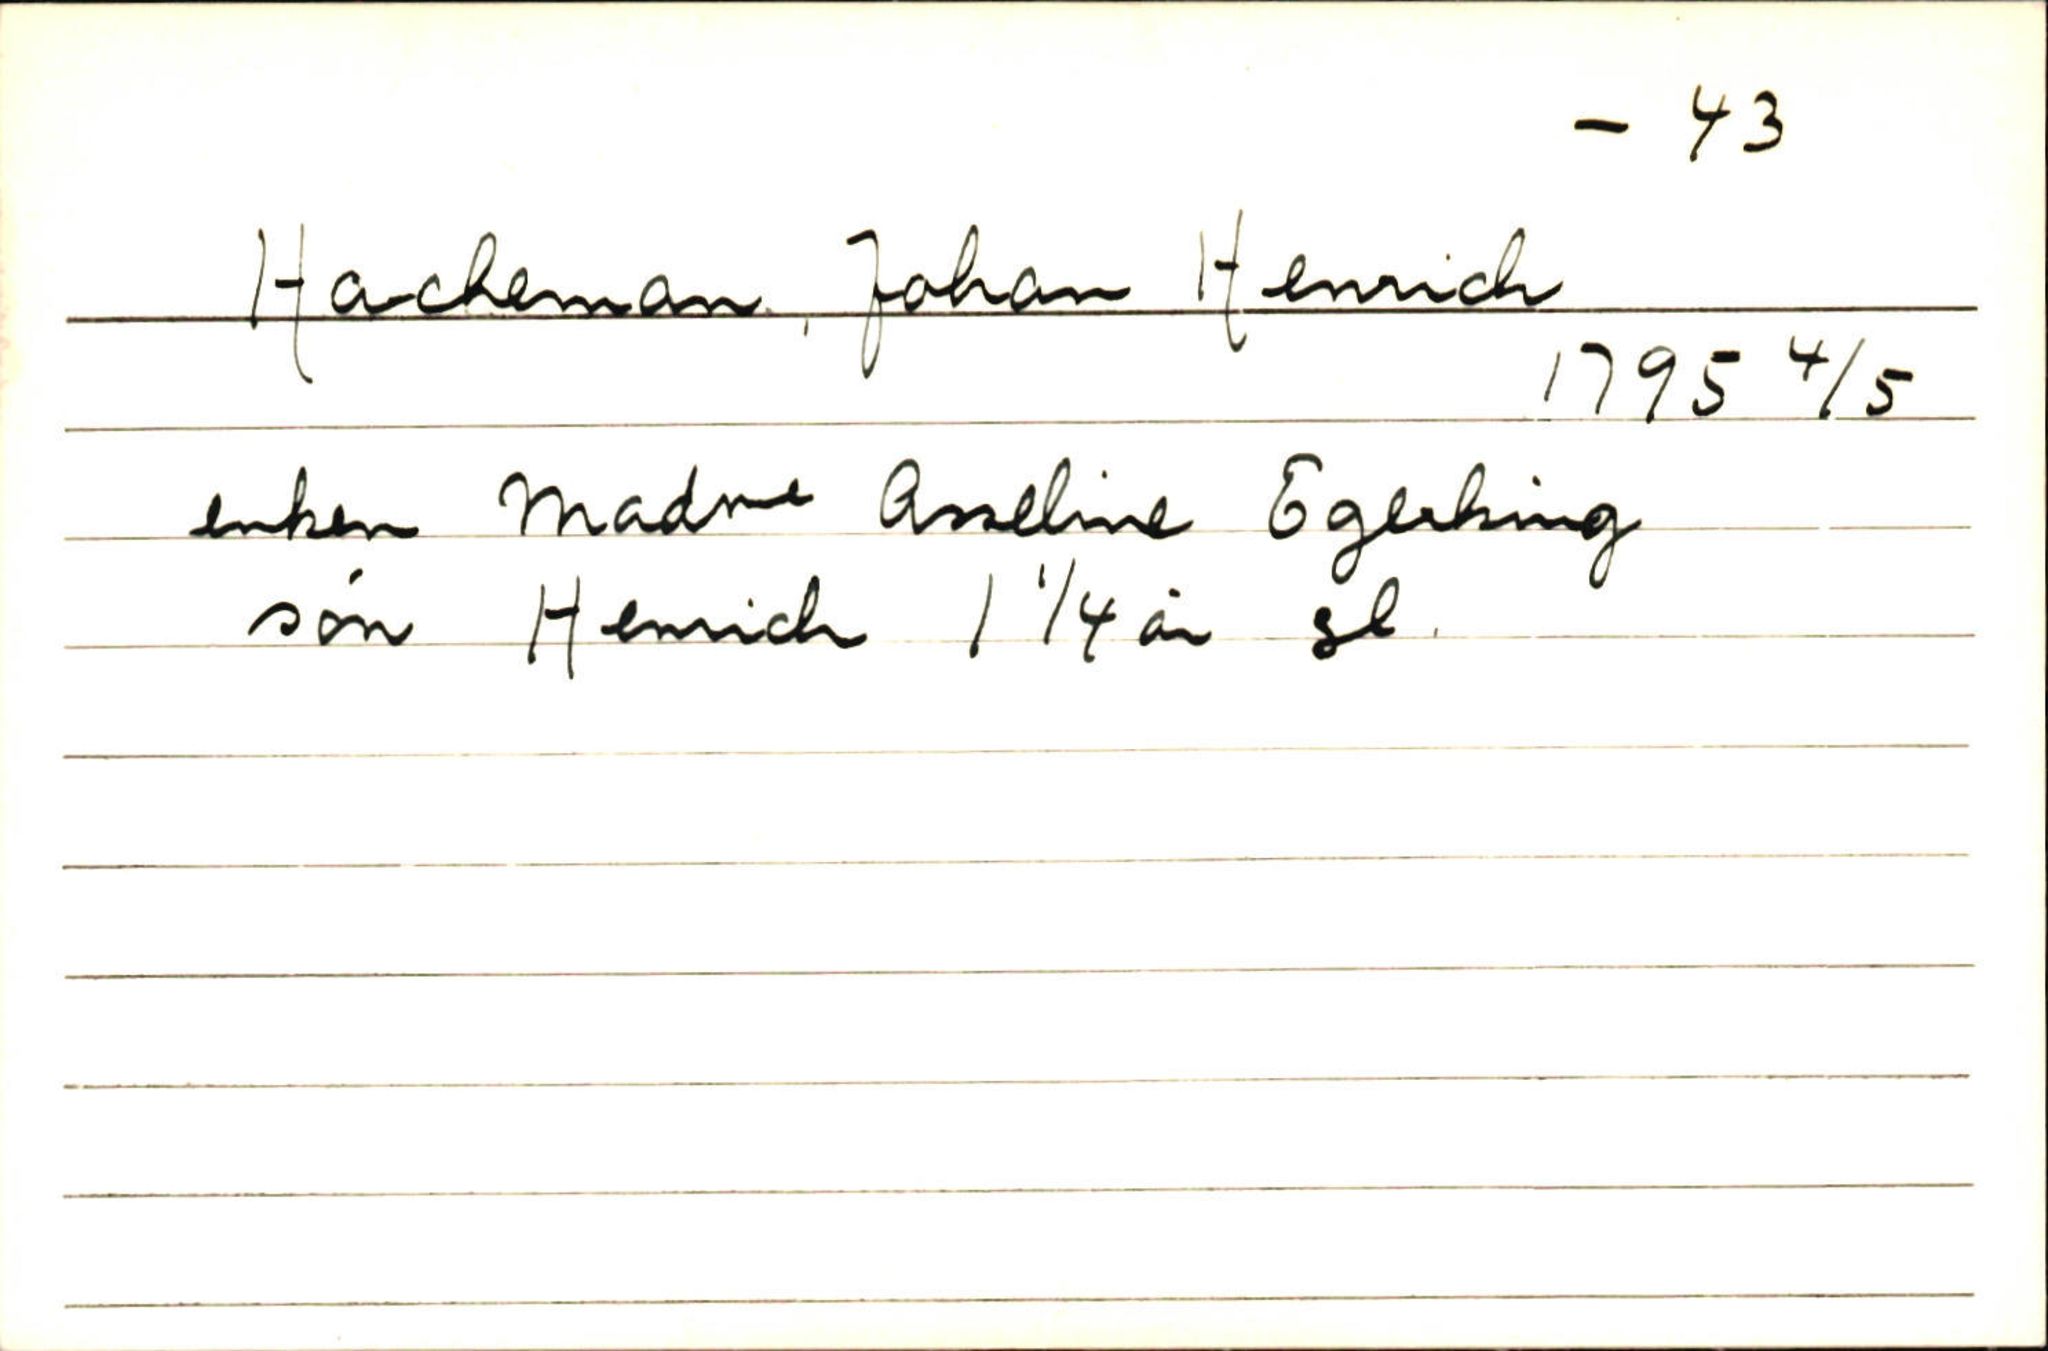 - 43
Hacheman, Johan Henrich
1795 4/5
enken Madme Asseline Egerking
søn Henrich 1 1/4 år gl.